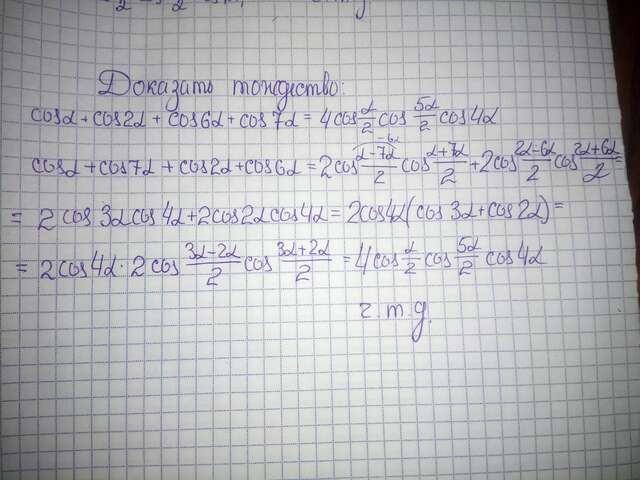 Доказать тождество:
cosα + cos2α + cos6α + cos7α = 4cos α/2 cos 5α/2 cos4α
cosα + cos7α + cos2α + cos6α = 2cos (α-7α)/2 cos (α+7α)/2 + 2cos (2α-6α)/2 cos (2α+6α)/2 =
-6α
= 2cos3αcos4α + 2cos2αcos4α = 2cos4α(cos3α + cos2α) =
= 2cos4α · 2cos (3α-2α)/2 cos (3α+2α)/2 = 4cos α/2 cos 5α/2 cos4α
ч.т.д.